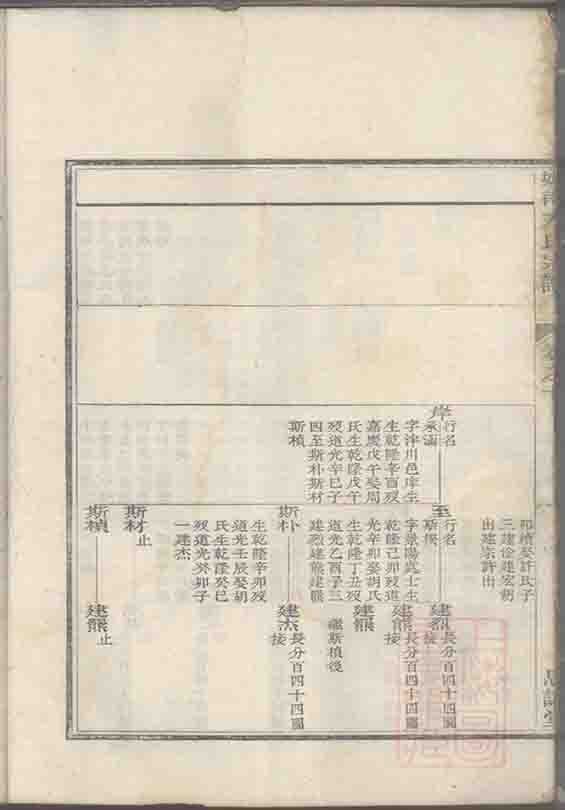 三建佺建宏胡
出建宗許出
岸
行名
承涵
字泮川邑庠生
生乾隆辛酉歿
嘉慶戊午娶周
氏生乾隆戊午
歿道光辛巳子
四至斯朴斯材
斯楨
至
行名
字景陽武士生
乾隆己卯歿道
光辛卯娶胡氏
生乾隆丁丑歿
道光乙酉子三
建烈建熊建羆
建烈
長分百四十四圖
接
建熊
長分百四十四圖
接
建羆
繼斯楨後
斯朴
生乾隆辛卯歿
道光壬辰娶胡
氏生乾隆癸巳
歿道光癸卯子
一建杰
建杰
長分百四十四圖
接
斯材
止
斯楨
建羆
止